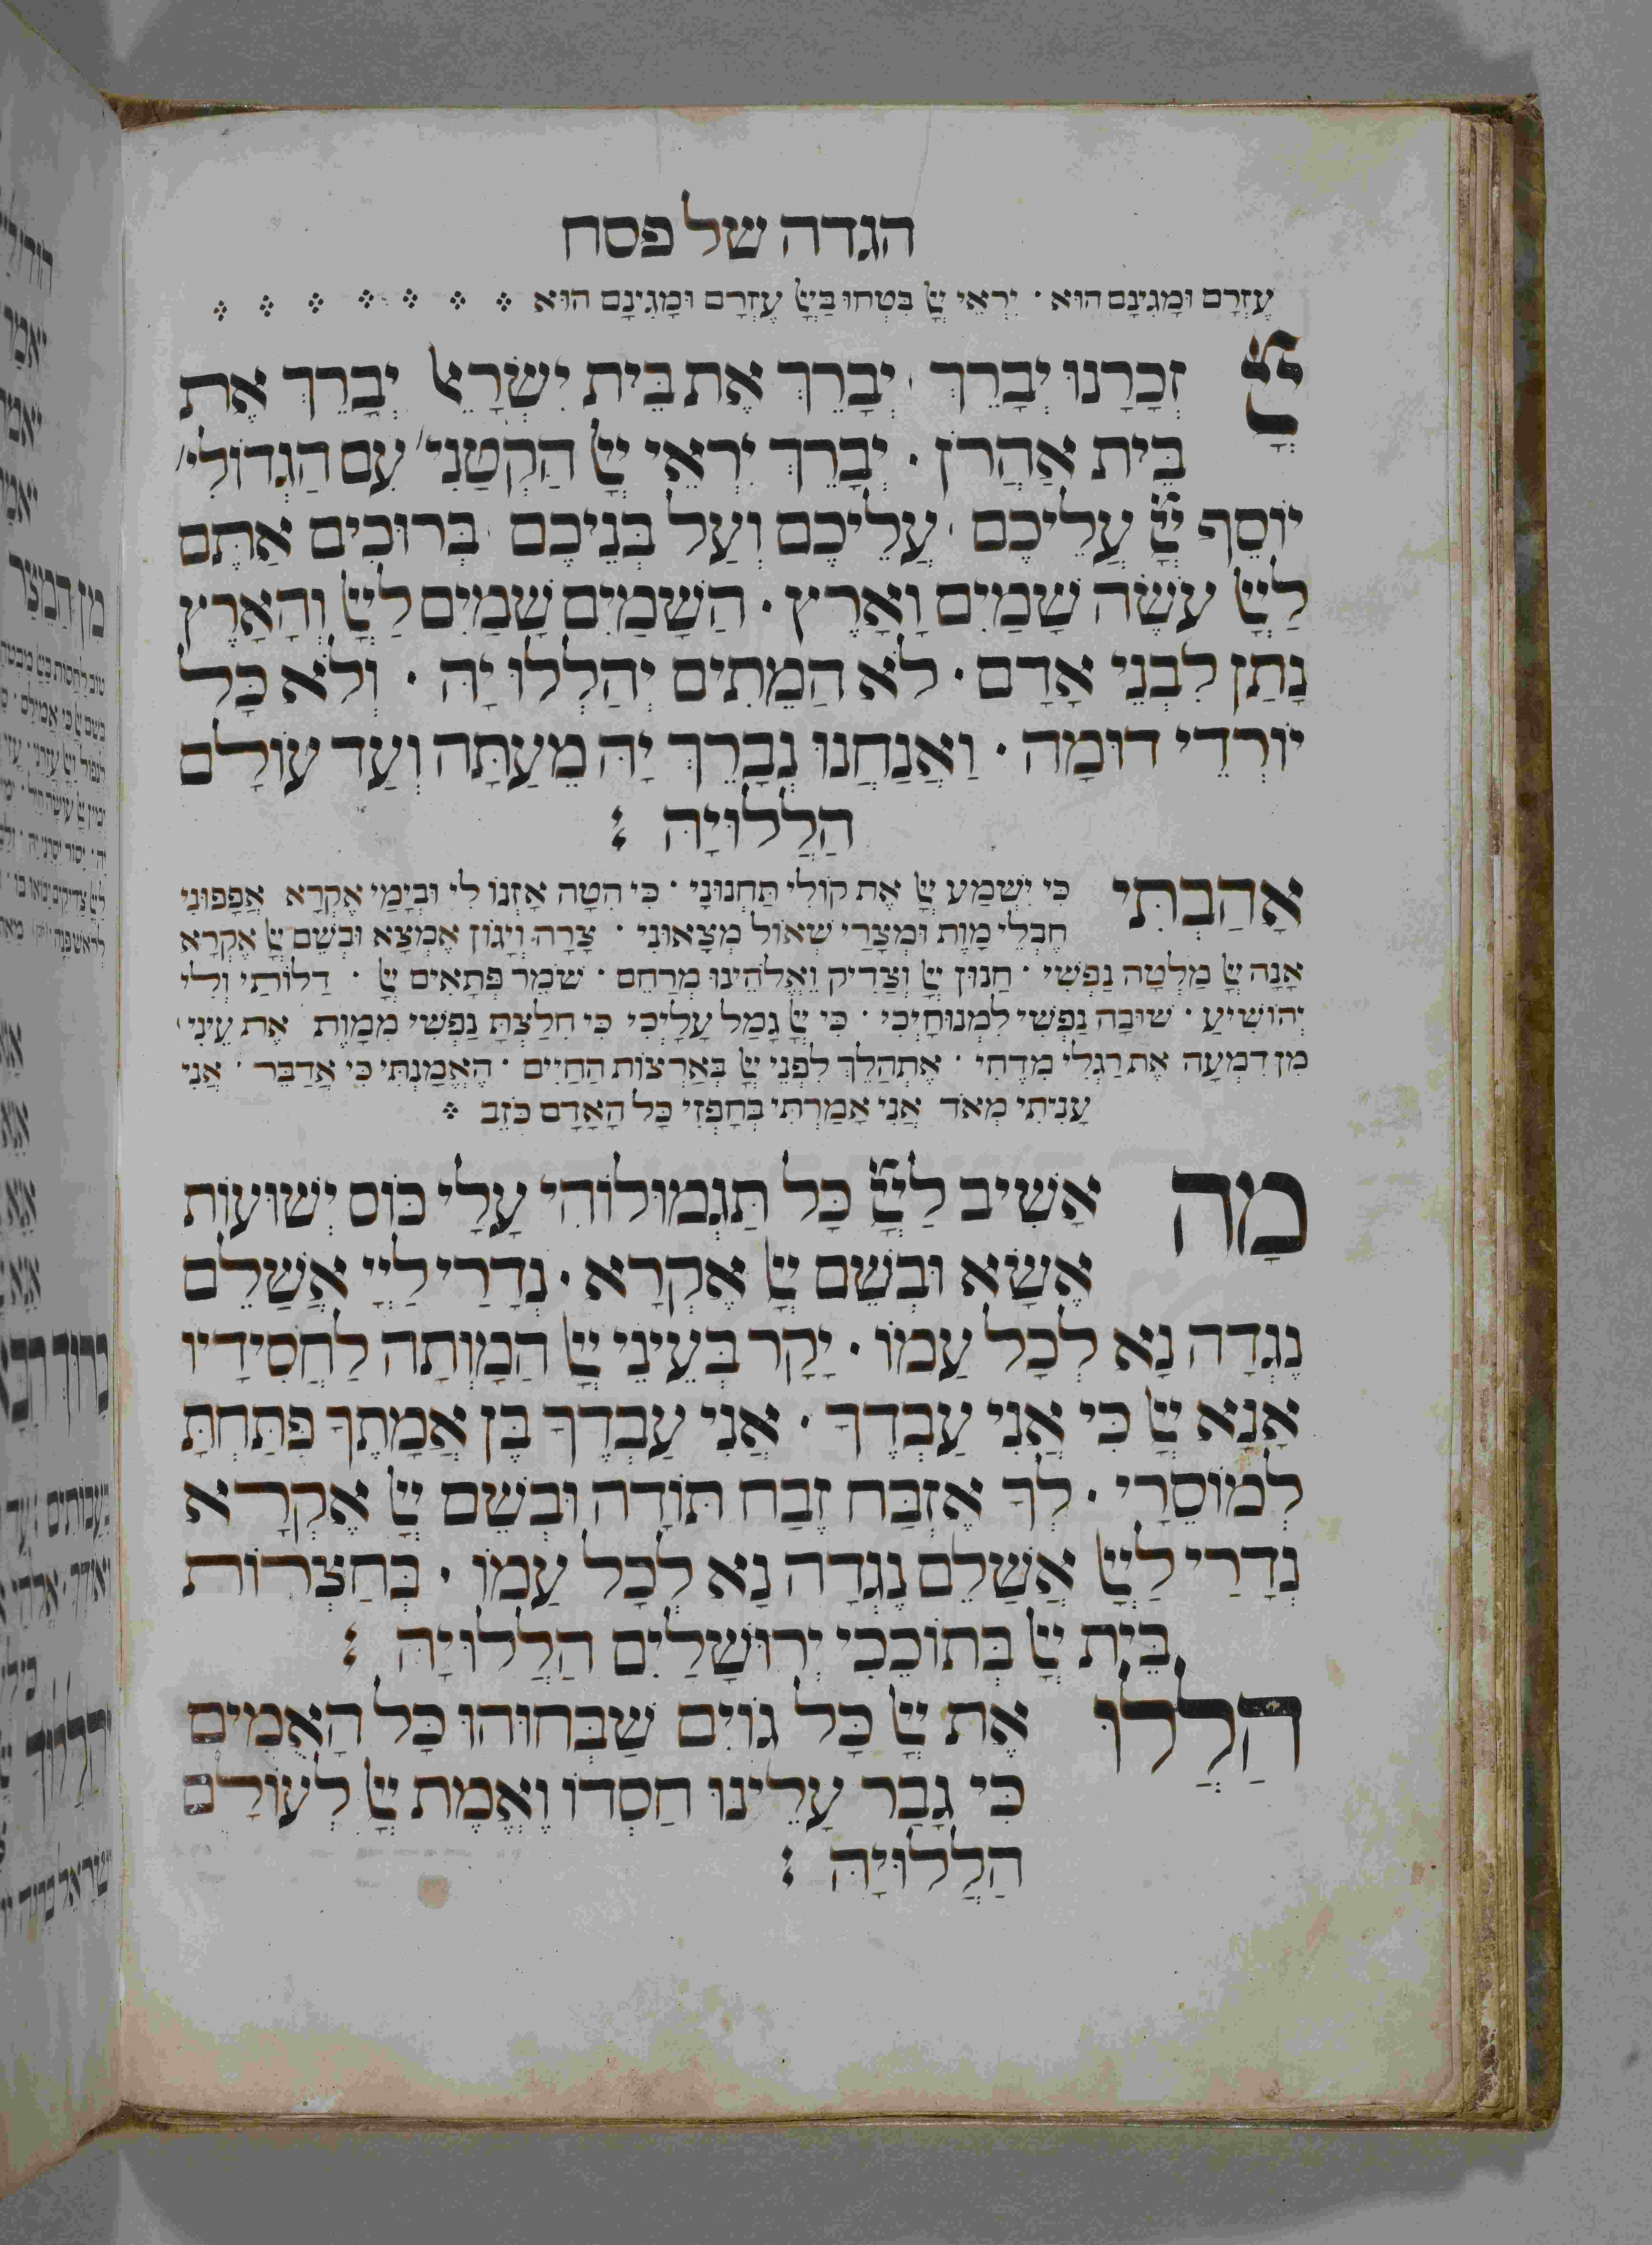 הגדה של פסח
עֶזְרָם וּמָגִינָם הוּא · יִרְאֵי יְיָ בִּטְחוּ בַּייָ עֶזְרָם וּמָגִינָם הוּא
יְיָ זְכָרָנוּ יְבָרֵךְ · יְבָרֵךְ אֶת בֵּית יִשְׂרָאֵל יְבָרֵךְ אֶת
בֵּית אַהֲרֹן · יְבָרֵךְ יִרְאֵי יְיָ הַקְטַנִי׳ עִם הַגְדוֹלִי׳
יוֹסֵף יְיָ עֲלֵיכֶם · עֲלֵיכֶם וְעַל בְּנֵיכֶם בְּרוּכִים אַתֶּם
לַיְיָ עֹשֶׂה שָׁמַיִם וָאָרֶץ · הַשָׁמַיִם שָׁמַיִם לַיְיָ וְהָאָרֶץ
נָתַן לִבְנֵי אָדָם · לֹא הַמֵתִים יְהַלְלוּ יָהּ · וְלֹא כָּל
יוֹרְדֵי דוּמָה · וַאֲנַחֲנוּ נְבָרֵךְ יָהּ מֵעַתָּה וְעַד עוֹלָם
הַלֲלוּיָהּ :
אָהַבְתִּי כִּי יִשְׁמַע יְיָ אֶת קוֹלִי תַּחְנוּנָי · כִּי הִטָה אָזְנוֹ לִי וּבְיָמַי אֶקְרָא אֲפָפוּנִי
חֶבְלֵי מָוֶת וּמְצָרֵי שְׁאוֹל מְצָאוּנִי · צָרָה וְיָגוֹן אֶמְצָא וּבְשֵׁם יְיָ אֶקְרָא
אָנָה יְיָ מַלְטָה נַפְשִׁי · חַנוּן יְיָ וְצַדִיק וֵאֱלֹהֵינוּ מְרַחֵם · שׁוֹמֵר פְּתָאִים יְיָ · דַלוֹתִי וְלִי
יְהוֹשִׁיעַ · שׁוּבָה נַפְשִׁי לִמְנוּחָיְכִי · כִּי יְיָ גָמַל עָלָיְכִי כִּי חִלַצְתָּ נַפְשִׁי מִמָוֶת אֶת עֵינִי׳
מִן דִמְעָה אֶת רַגְלִי מִדֶחִי · אֶתְהַלֵךְ לִפְנֵי יְיָ בְּאַרְצוֹת הַחַיִים · הֶאֱמַנְתִּי כִּי אֲדַבֵּר · אֲנִי
עָנִיתִי מְאֹד אֲנִי אָמַרְתִּי בְּחָפְזִי כָּל הָאָדָם כֹּזֵב
מָה אָשִׁיב לַיְיָ כָּל תַּגְמוּלוֹהִי עָלָי כּוֹס יְשׁוּעוֹת
אֶשָׂא וּבְשֵׁם יְיָ אֶקְרָא · נְדָרַי לַיְיָ אֲשַׁלֵם
נֶגְדָה נָא לְכָל עַמוֹ · יָקָר בְּעֵינֵי יְיָ הַמָוְתָה לַחֲסִידָיו
אָנָא יְיָ כִּי אֲנִי עַבְדֶךָ · אֲנִי עַבְדְךָ בֶּן אֲמָתֶךָ פִּתַּחְתָּ
לְמוֹסֵרָי · לְךָ אֶזְבַּח זֶבַח תּוֹדָה וּבְשֵׁם יְיָ אֶקְרָא
נְדָרַי לַיְיָ אֲשַׁלֵם נֶגְדָה נָא לְכָל עַמוֹ · בְּחַצְרוֹת
בֵּית יְיָ בְּתוֹכֵכִי יְרוּשָׁלַיִם הַלֲלוּיָהּ :
הַלֲלוּ אֶת יְיָ כָּל גוֹיִם שַׁבְּחוּהוּ כָּל הָאֻמִים
כִּי גָבַר עָלֵינוּ חַסְדוֹ וֶאֱמֶת יְיָ לְעוֹלָם
הַלֲלוּיָהּ :